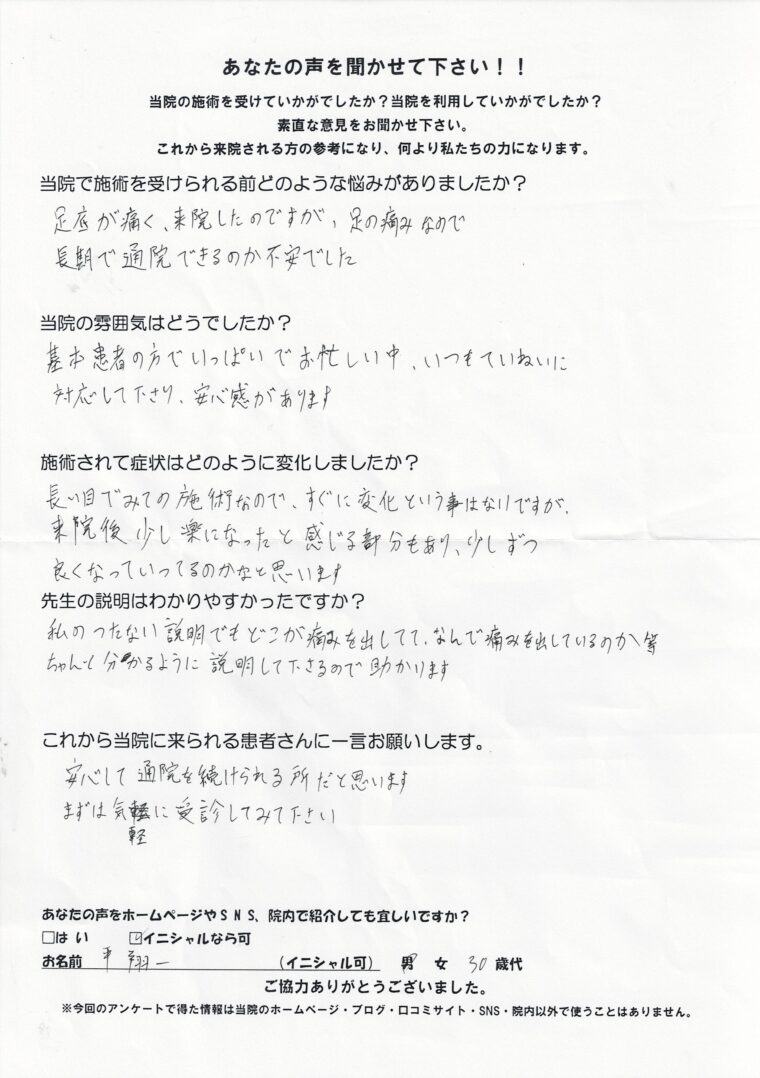 あなたの声を聞かせて下さい！！
当院の施術を受けていかがでしたか？当院を利用していかがでしたか？
素直な意見をお聞かせ下さい。
これから来院される方の参考になり、何より私たちの力になります。
当院で施術を受けられる前どのような悩みがありましたか？
足底が痛く、来院したのですが、足の痛みなので
長期で通院できるのか不安でした
当院の雰囲気はどうでしたか？
基本患者の方でいっぱいでお忙しい中、いつもていねいに
対応して下さり、安心感があります
施術されて症状はどのように変化しましたか？
長い目でみての施術なので、すぐに変化という事はないですが、
来院後少し楽になったと感じる部分もあり、少しずつ
良くなっていってるのかなと思います
先生の説明はわかりやすかったですか？
私のつたない説明でもどこが痛みを出してて、なんで痛みを出しているのか等
ちゃんと分かるように説明して下さるので助かります
これから当院に来られる患者さんに一言お願いします。
安心して通院を続けられる所だと思います
まずは気軽に受診してみて下さい
軽
あなたの声をホームページやＳＮＳ、院内で紹介しても宜しいですか？
□はい ☑イニシャルなら可
お名前 平 翔一 （イニシャル可） 男 女 30歳代
ご協力ありがとうございました。
※今回のアンケートで得た情報は当院のホームページ・ブログ・口コミサイト・SNS・院内以外で使うことはありません。